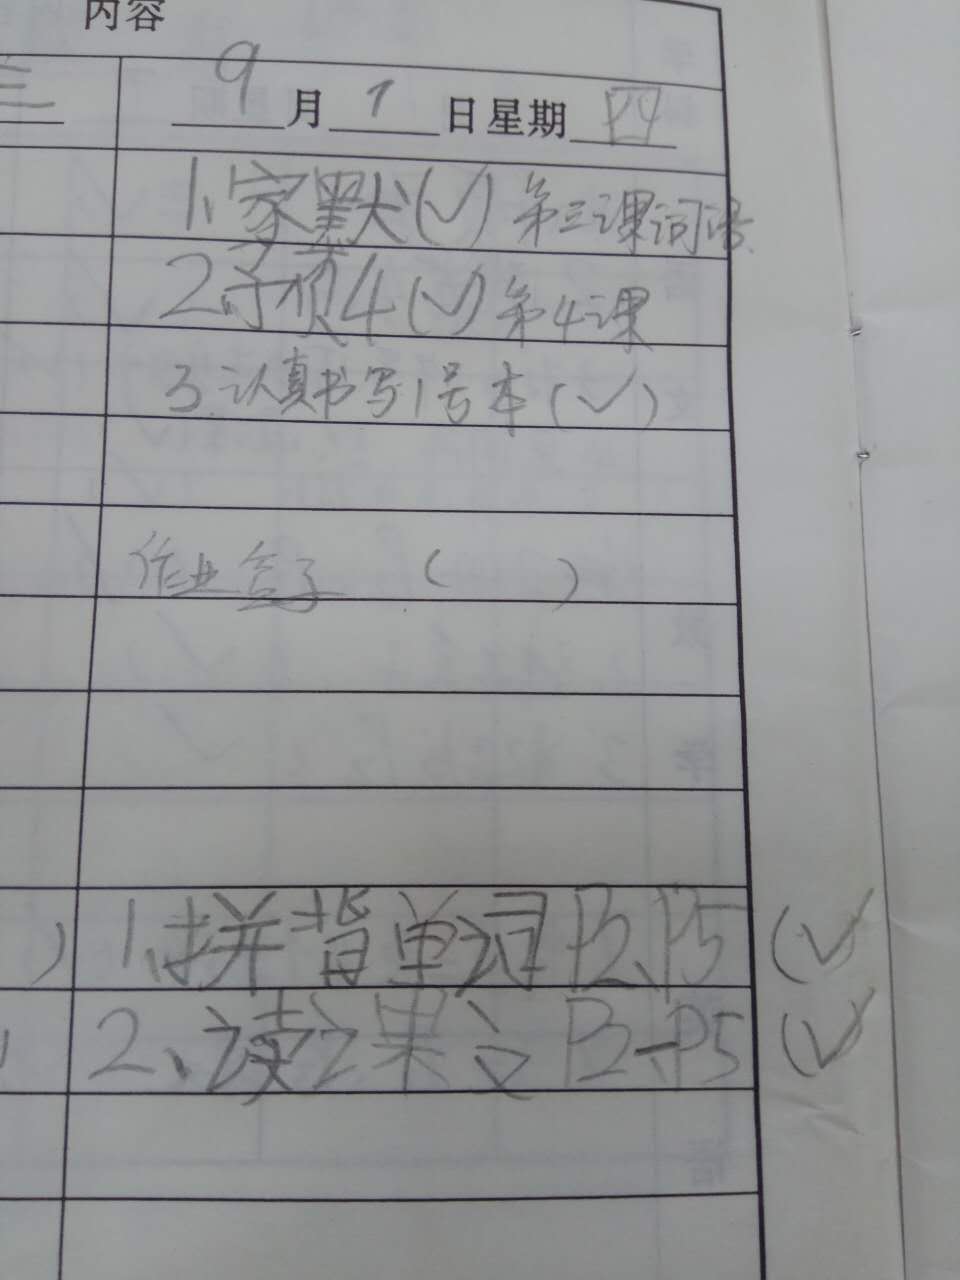 内容
9月1日星期四
1.家默(✓)第三课词语
2.予项4(✓)第4课
3.认真书写1号本(✓)
作业盒子 ( )
1、拼背单词P2、P5(✓)
2、读课文P2-P5(✓)